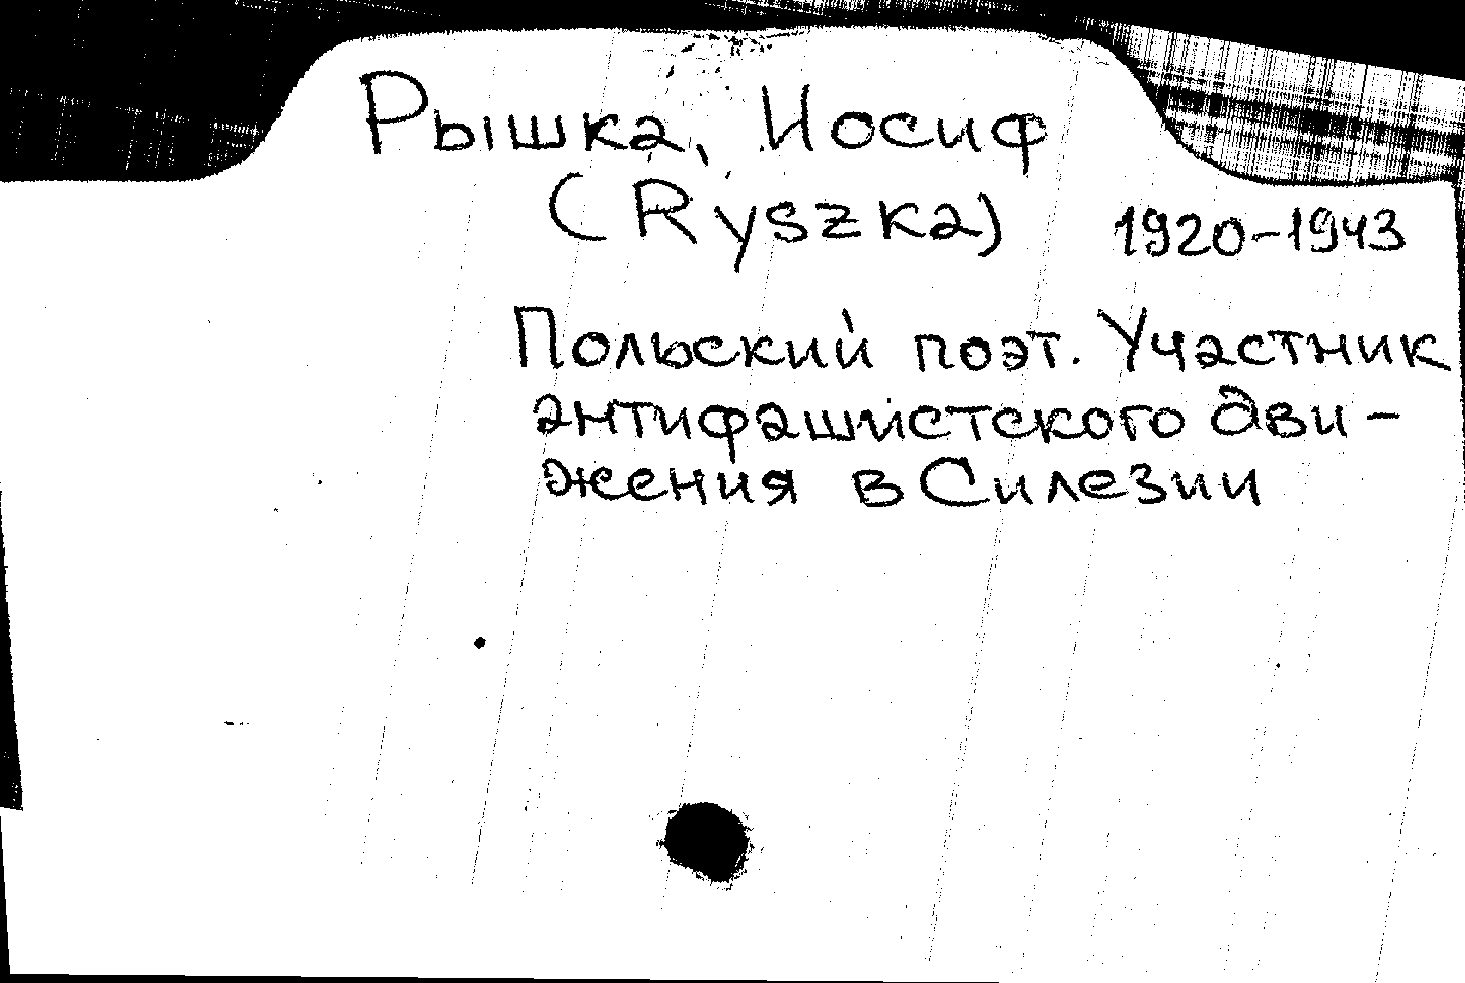 Рышка, Иосиф
(Ryszka) 1920-1943
Польский поэт. Участник
антифашистского дви-
жения в Силезии